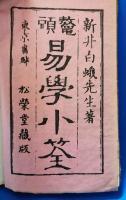 新井白蛾先生著
鼇頭
易學小筌
東京書肆 松榮堂藏版